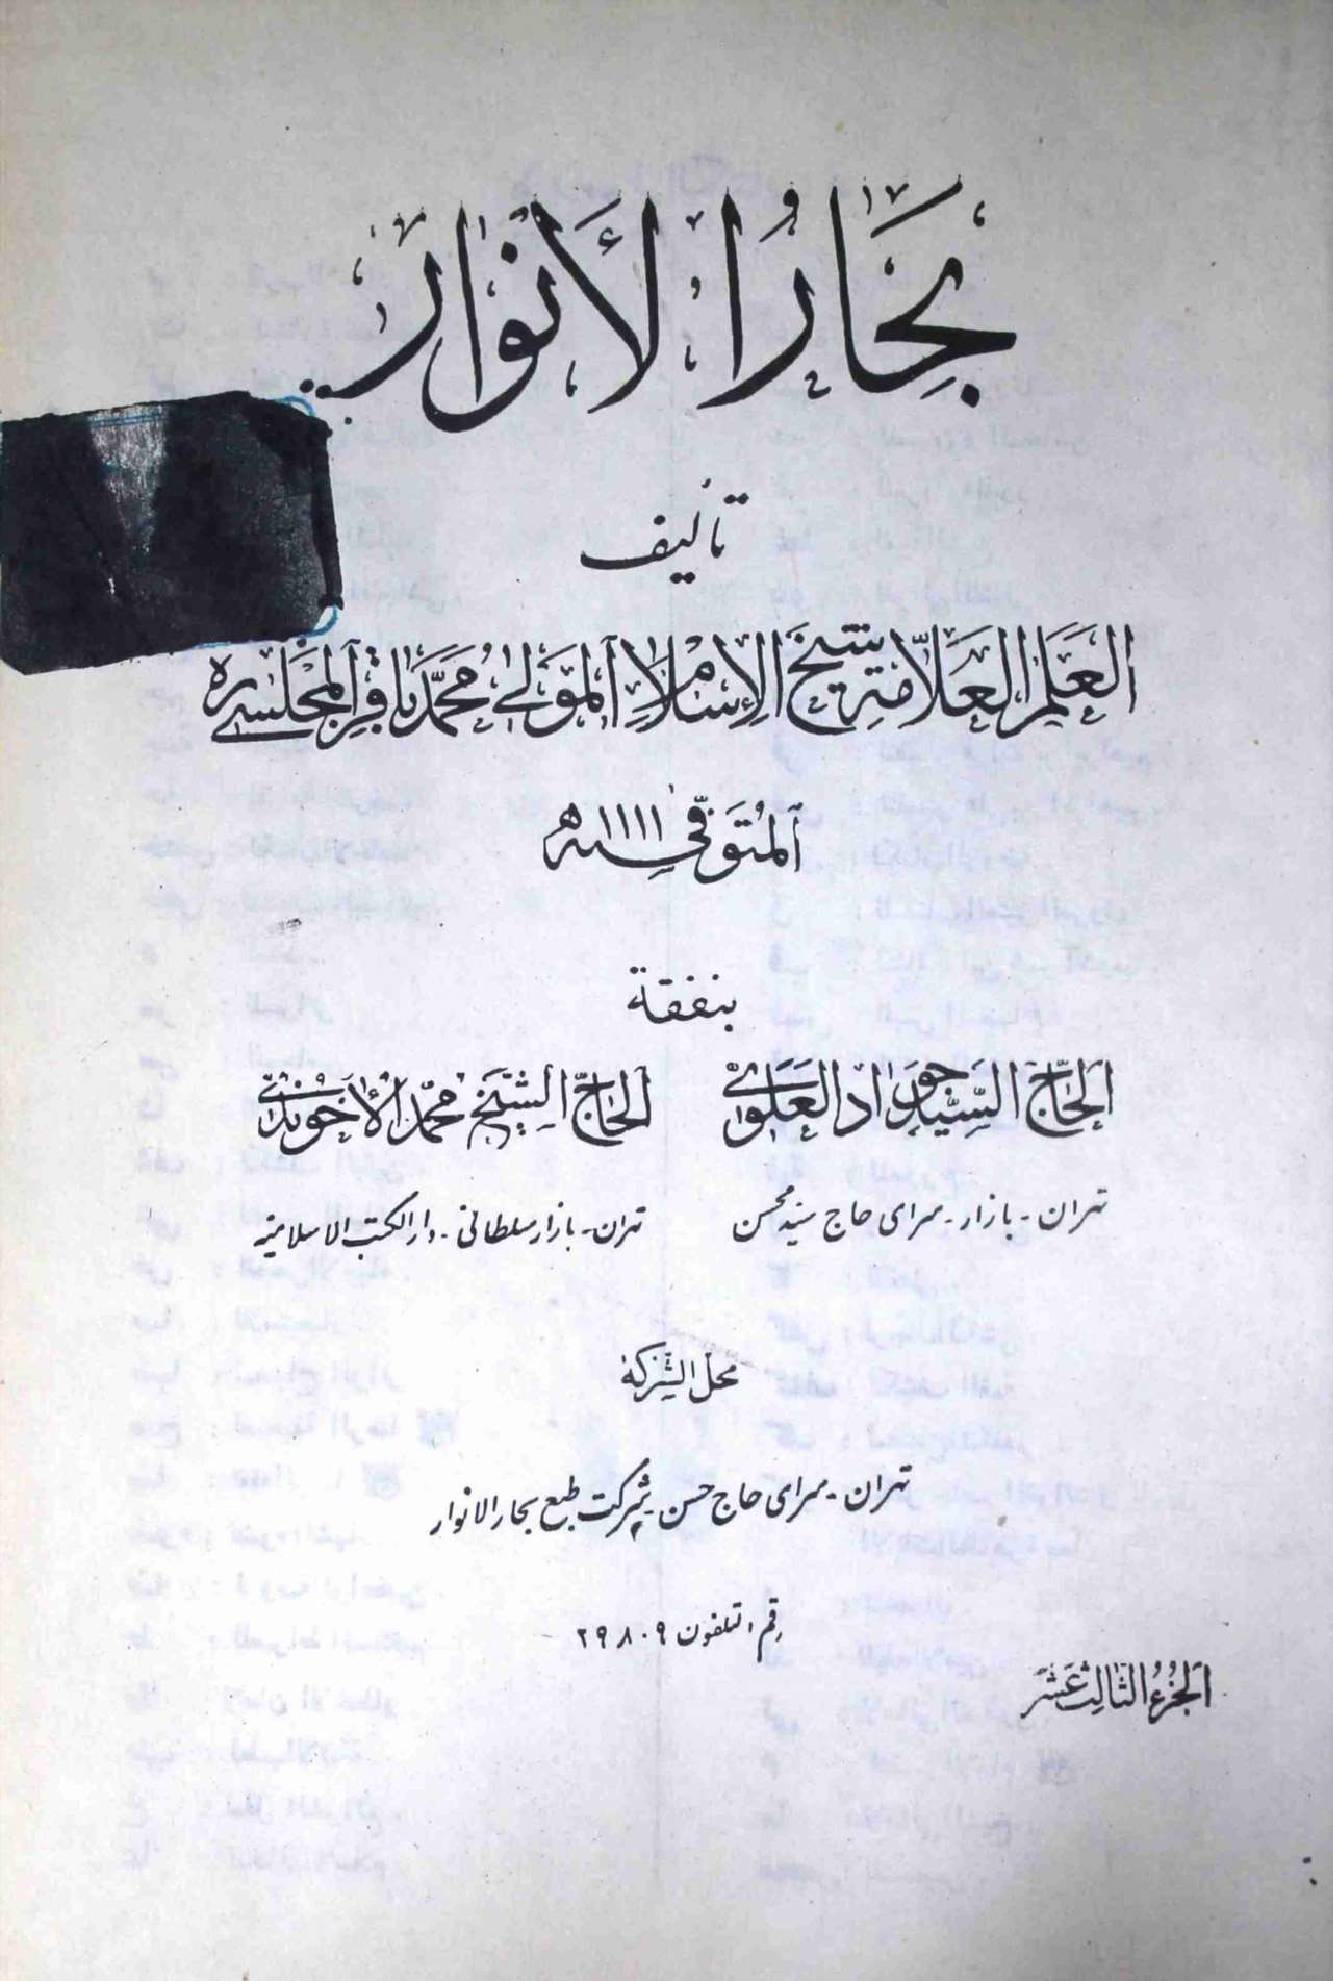 بِحَارُ الْأَنْوَار
تأليف
العَلَم العَلّامة شيخ الإسلام المَولى محمّد باقر المجلسي ره
المُتَوفّى ۱۱۱۱ ه
بنفقة
الحاجّ السّيد جواد العلوى
الحاجّ الشّيخ محمّد الآخوندى
تهران - بازار - سرای حاج سید محسن
تهران - بازار سلطانی - دار الکتب الاسلامیة
محل الشّركة
تهران - سرای حاج حسن - شرکت طبع بحار الانوار
رقم التلفون ۲۹۸۰۹
الجزء الثالث عشر